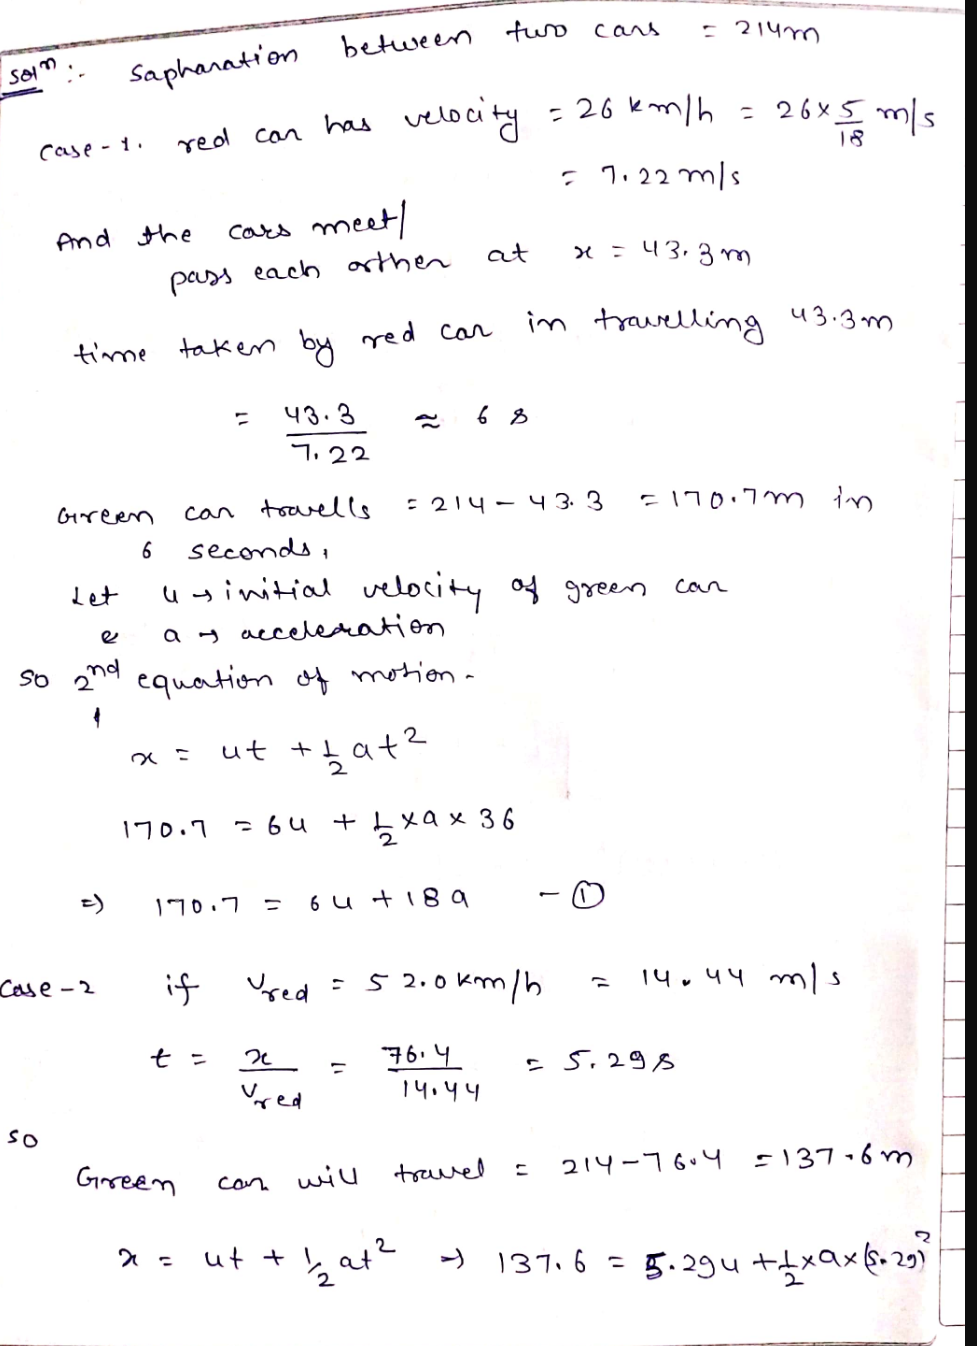 Solⁿ :- sapharation between two cars = 214m
Case-1. red car has velocity = 26 km/h = 26 × 5/18 m/s
= 7.22 m/s
And the cars meet/
pass each orther at x = 43.3m
time taken by red car in travelling 43.3m
= 43.3/7.22 ≈ 6 s
Green car travells = 214 - 43.3 = 170.7m in
6 seconds,
Let u → initial velocity of green car
& a → acceleration
so 2nd equation of motion -
x = ut + 1/2 at²
170.7 = 6u + 1/2 × a × 36
⇒ 170.7 = 6u + 18a - ①
Case-2 if Vred = 52.0 km/h = 14.44 m/s
t = x/Vred = 76.4/14.44 = 5.29s
so
Green car will travel = 214 - 76.4 = 137.6m
x = ut + 1/2 at² ⇒ 137.6 = 5.29u + 1/2 × a × (5.29)²